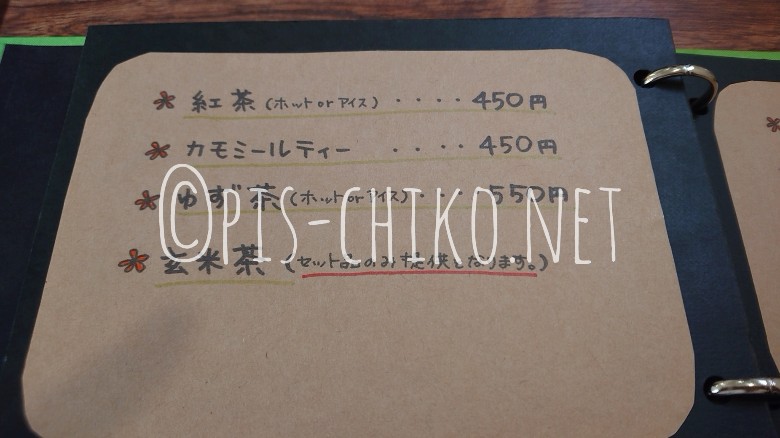 紅茶(ホットorアイス)・・・・450円
カモミールティー ・・・・450円
ゆず茶(ホットorアイス)・・・550円
©PIS-CHIKO.NET
玄米茶(セット品のみ提供となります。)